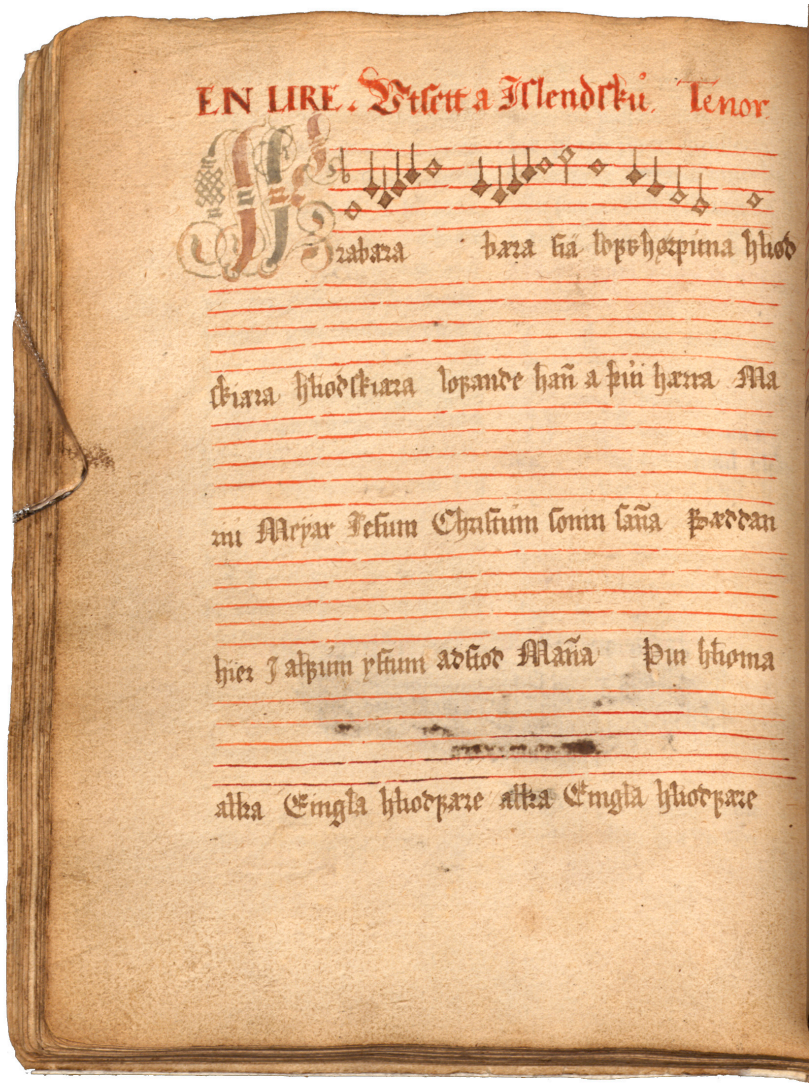 EN LIRE. Vtsett a Jslendsku. Tenor
Frabæra bæra fiä loꝼs hørpuna hliöd
skiæra hliodskiæra loꝼande han̄ a þui hærra Ma
rni Meyar Jesum Christum sonin san̄a ꝼædðan
hier J alꝼum ystum adstod Man̄a þui hlioma
allra Eingla hliodꝼære allra Eingla hliodꝼære